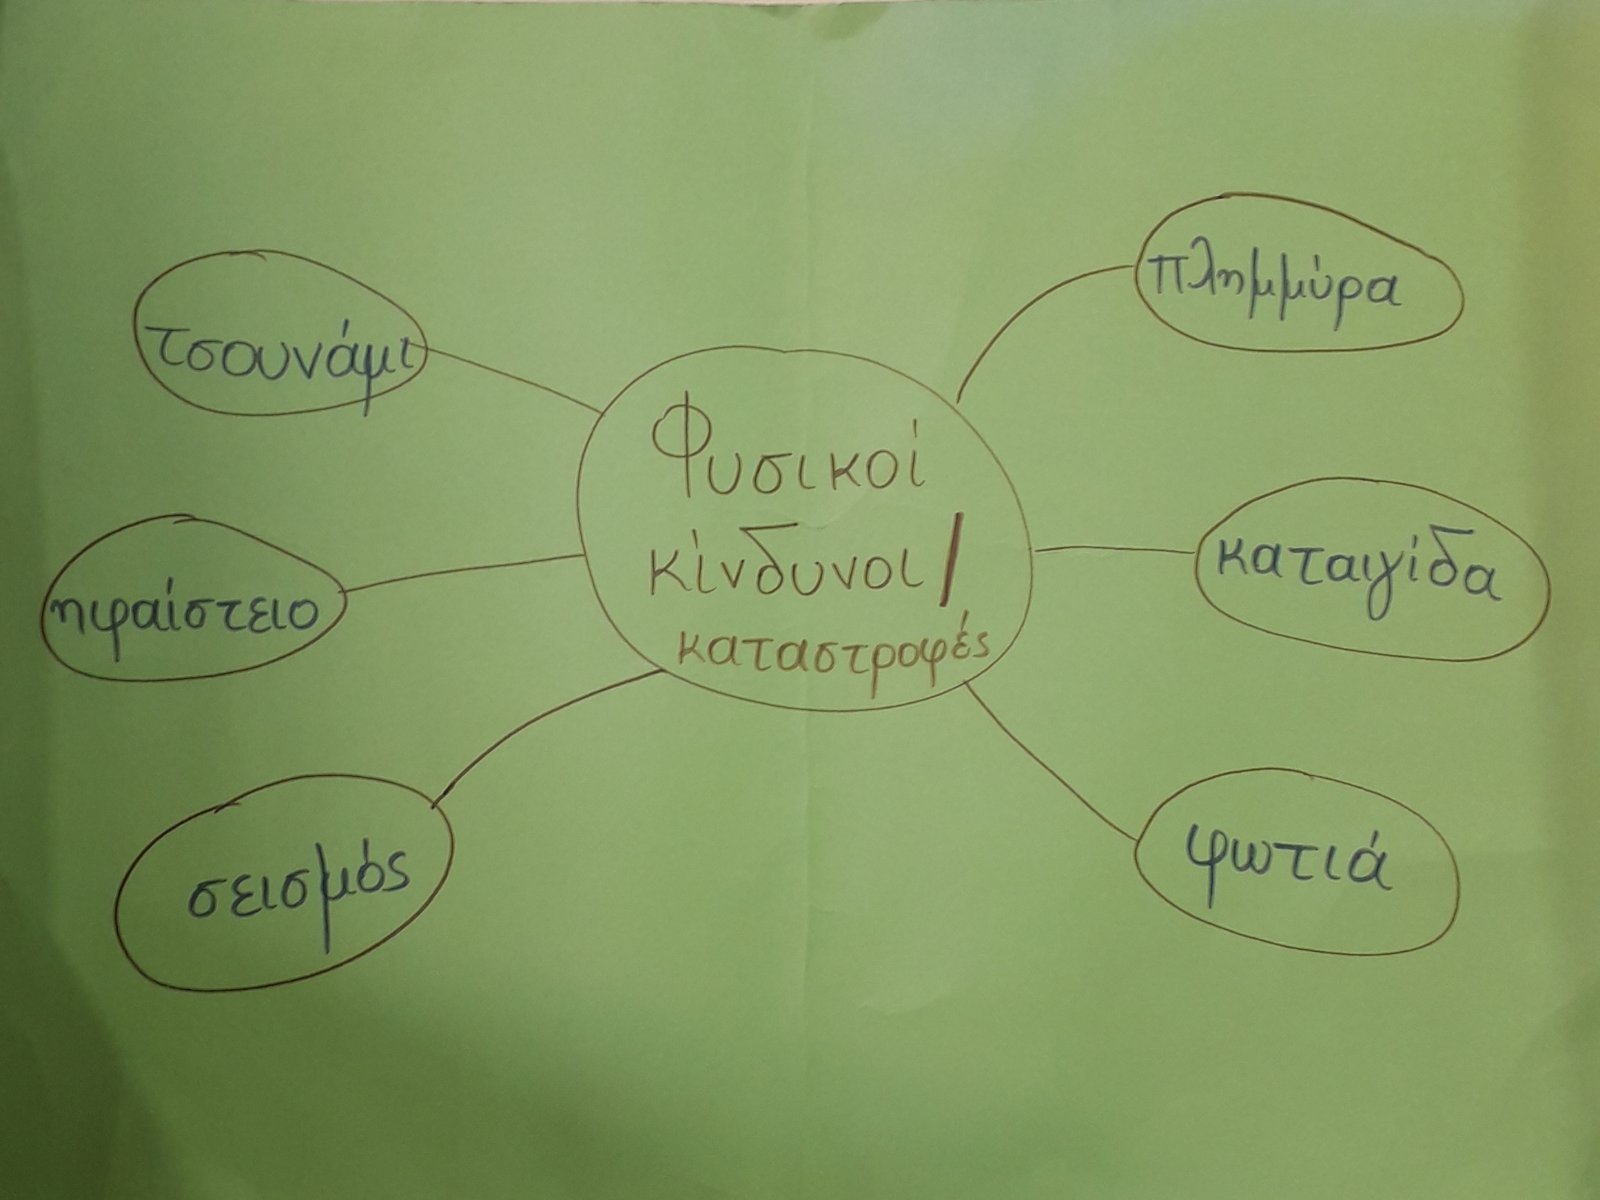 τσουνάμι
πλημμύρα
Φυσικοί
κίνδυνοι /
καταστροφές
ηφαίστειο
καταιγίδα
σεισμός
φωτιά